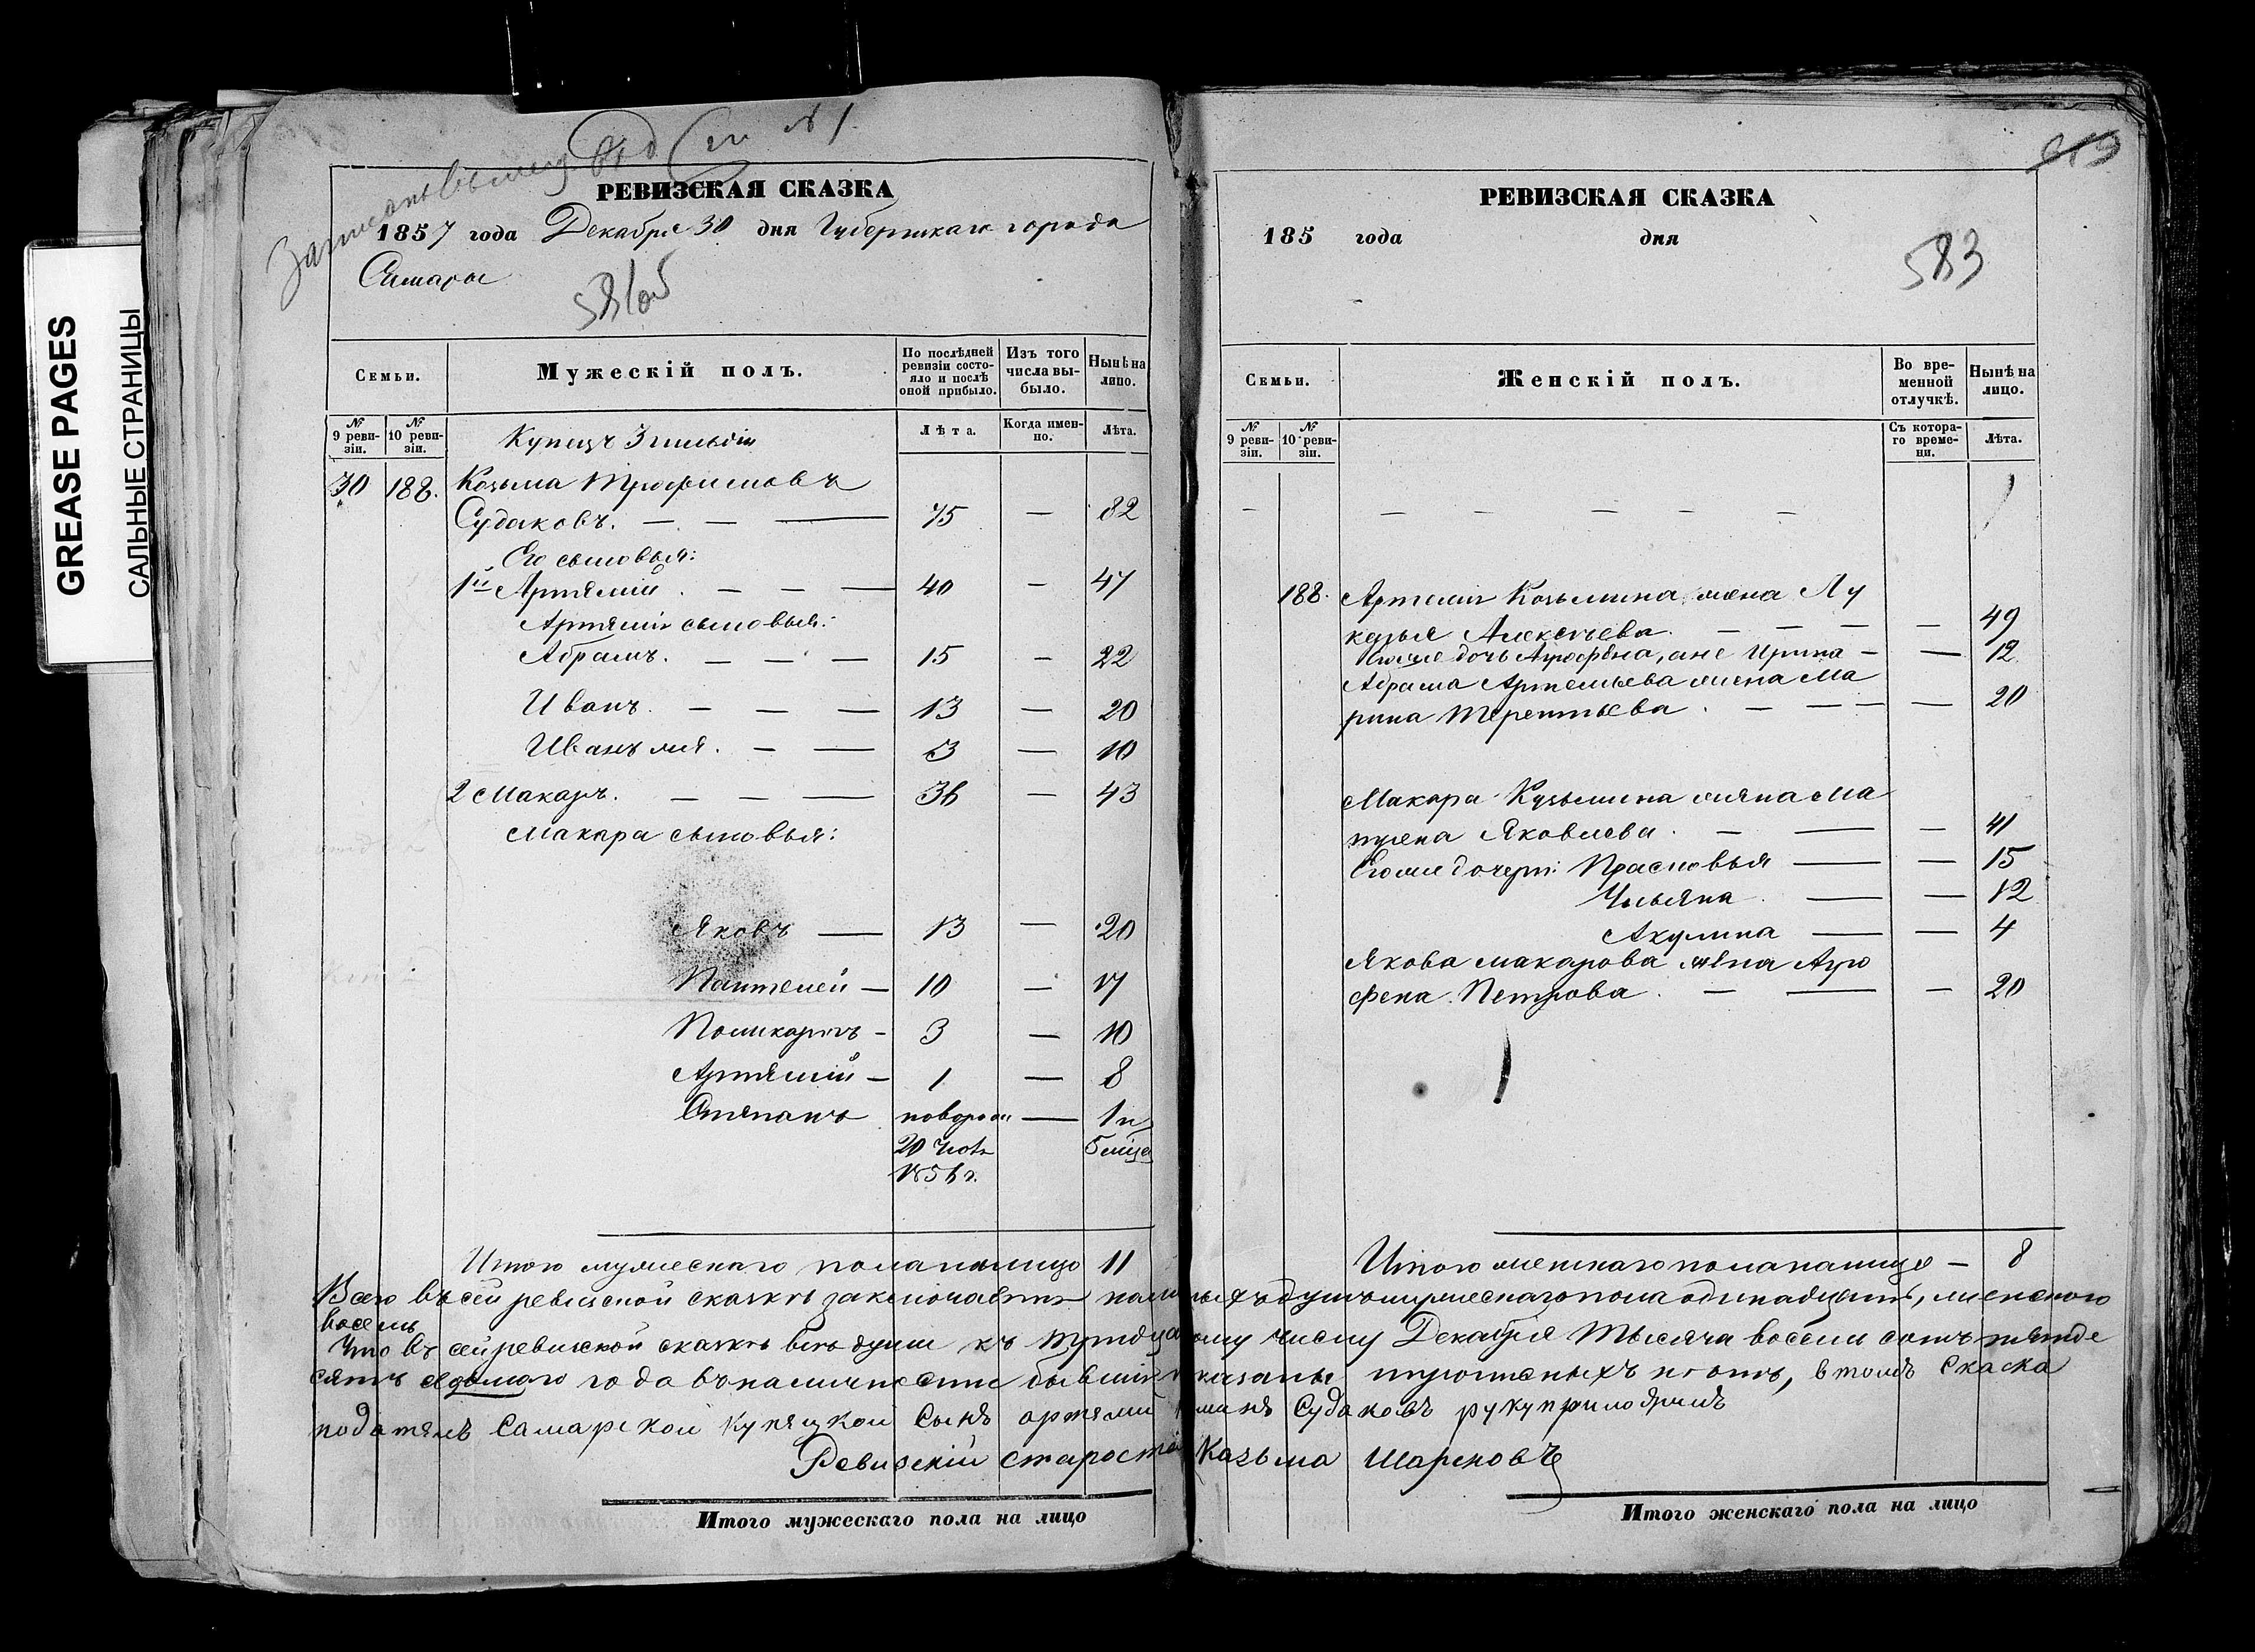 GREASE PAGES
САЛЬНЫЕ СТРАНИЦЫ
№ 1
РЕВИЗСКАЯ СКАЗКА
1857 года Декабря 30 дня Губернскаго города
Самары
Семьи.
Мужескій полъ.
По послѣдней ревизіи состояло и послѣ оной прибыло.
Изъ того числа выбыло.
Нынѣ на лицо.
№ 9 ревизіи.
№ 10 ревизіи.
Лѣта.
Когда именно.
Лѣта.
Купецъ 3 гильдіи
30 188. Козьма Трофимовъ
Судаковъ. — — — 75 — 82
Его сыновья:
1й Артемій . — — — 40 — 47
Артемія сыновья:
Абрамъ. — — — 15 — 22
Иванъ. — — — 13 — 20
Иванъ же. — — 3 — 10
2 Макаръ. — — — 36 — 43
Макара сыновья:
Яковъ — 13 — 20
Пантелей — 10 — 17
Поликарпъ - 3 — 10
Артемій — 1 — 8
Степанъ новорож — 1 и
20 Іюля 5 мѣся
1856 г.
Итого мужескаго пола налицо 11
РЕВИЗСКАЯ СКАЗКА
185 года дня
583
Семьи.
Женскій полъ.
Во временной отлучкѣ.
Нынѣ на лицо.
№ 9 ревизіи.
№ 10 ревизіи.
Съ котораго времени.
Лѣта.
188. Артемія Козьмина жена Лу
керья Алексѣева. — — — — 49
дочь Агрофена, она Ирина — — 12
Абрама Артемьева жена Ма
рина Терентьева . — — — — 20
Макара Кузьмина жена Ма
трена Яковлева . — — — 41
Его же дочери: Прасковья — — 15
Ульяна . — — 12
Акулина — — 4
Якова Макарова жена Агро
фена Петрова . — — — 20
Итого женскаго пола налицо — 8
Всего въ сей ревизской сказкѣ заключается душъ мужескаго пола одинадцать, женского
восемь
Что въ сей ревизской сказкѣ всѣ души къ тридца ому числу Декабря тысяча восемь сотъ пятде
сятъ седьмаго года въ наличности бывшіе показаны пропущеныхъ нѣтъ, втомъ скаска
подателъ Самарской купяцкой сынъ артями Судаковъ рукуприложилъ
Ревизскій староста Казьма Шарековъ
Итого мужескаго пола на лицо
Итого женскаго пола на лицо